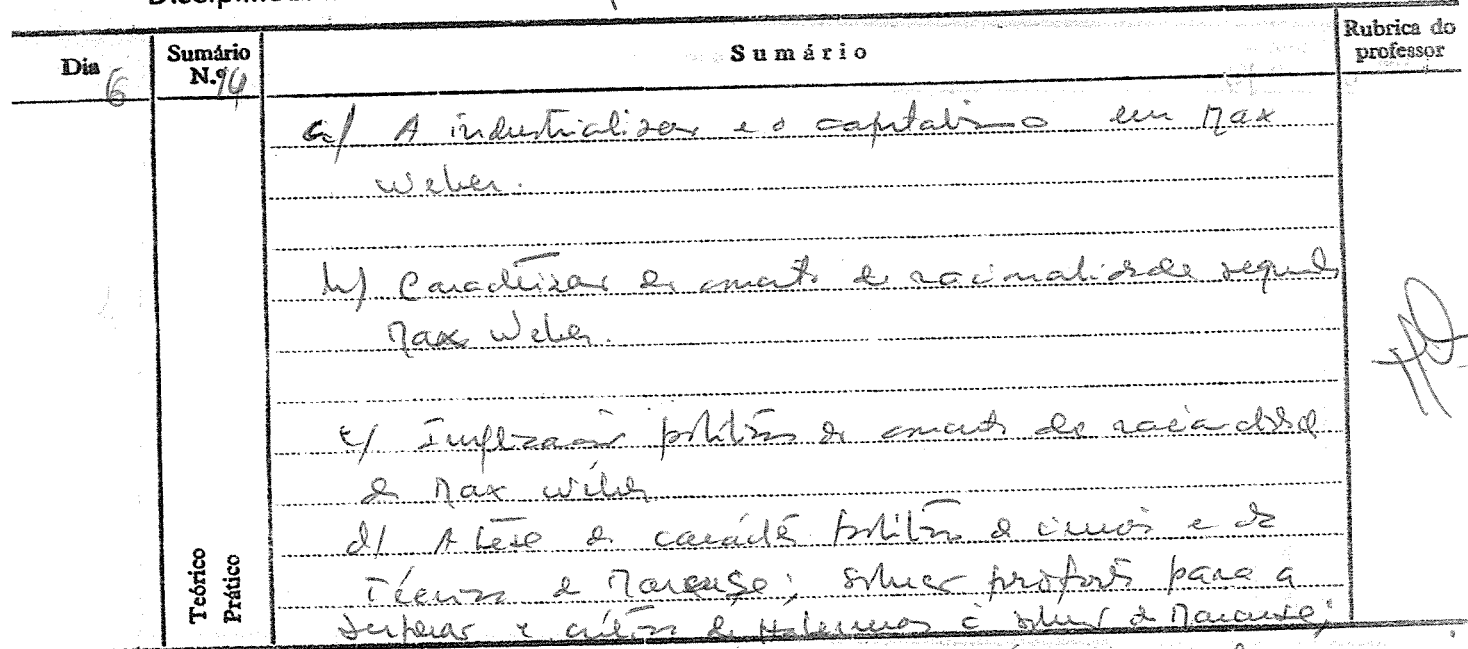 Dia 6
Sumário N.º
Sumário
Rubrica do professor
a/ A industrialização e o capitalismo em Max
Weber.
b) Caracterização do conceito de racionalidade segundo
Max Weber.
c/ Implicações políticas do conceito de racionalidade
de Max Weber
d/ A tese do carácter político da ciência e da
Técnica de Marcuse; solução proposta para a
superação e crítica de Habermas à solução de Marcuse;
Teórico
Prático